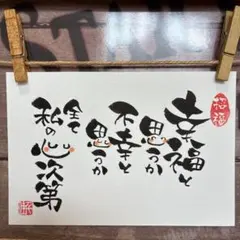 招福
幸福と
思うか
不幸と
思うか
全て
私の心次第